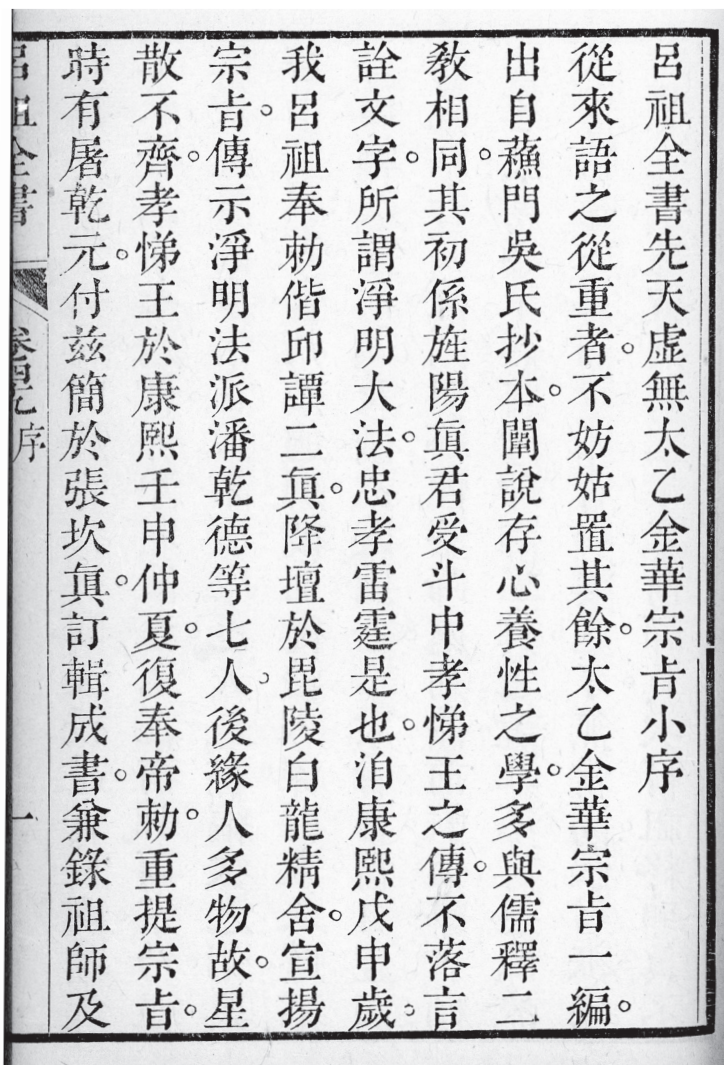 呂祖全書先天虛無太乙金華宗旨小序
從來語之從重者。不妨姑置其餘。太乙金華宗旨一編。
出自蘓門吳氏抄本。闡說存心養性之學。多與儒釋二
敎相同。其初係旌陽眞君受斗中孝悌王之傳。不落言
詮文字。所謂淨明大法。忠孝雷霆是也。洎康熙戊申歲。
我呂祖奉勅偕邱譚二眞。降壇於毘陵白龍精舍。宣揚
宗旨。傳示淨明法派潘乾德等七人。後緣人多物故。星
散不齊。孝悌王於康熙壬申仲夏。復奉帝勅。重提宗旨。
時有屠乾元。付茲簡於張坎眞。訂輯成書。兼錄祖師及
呂祖全書
卷四九 序
一